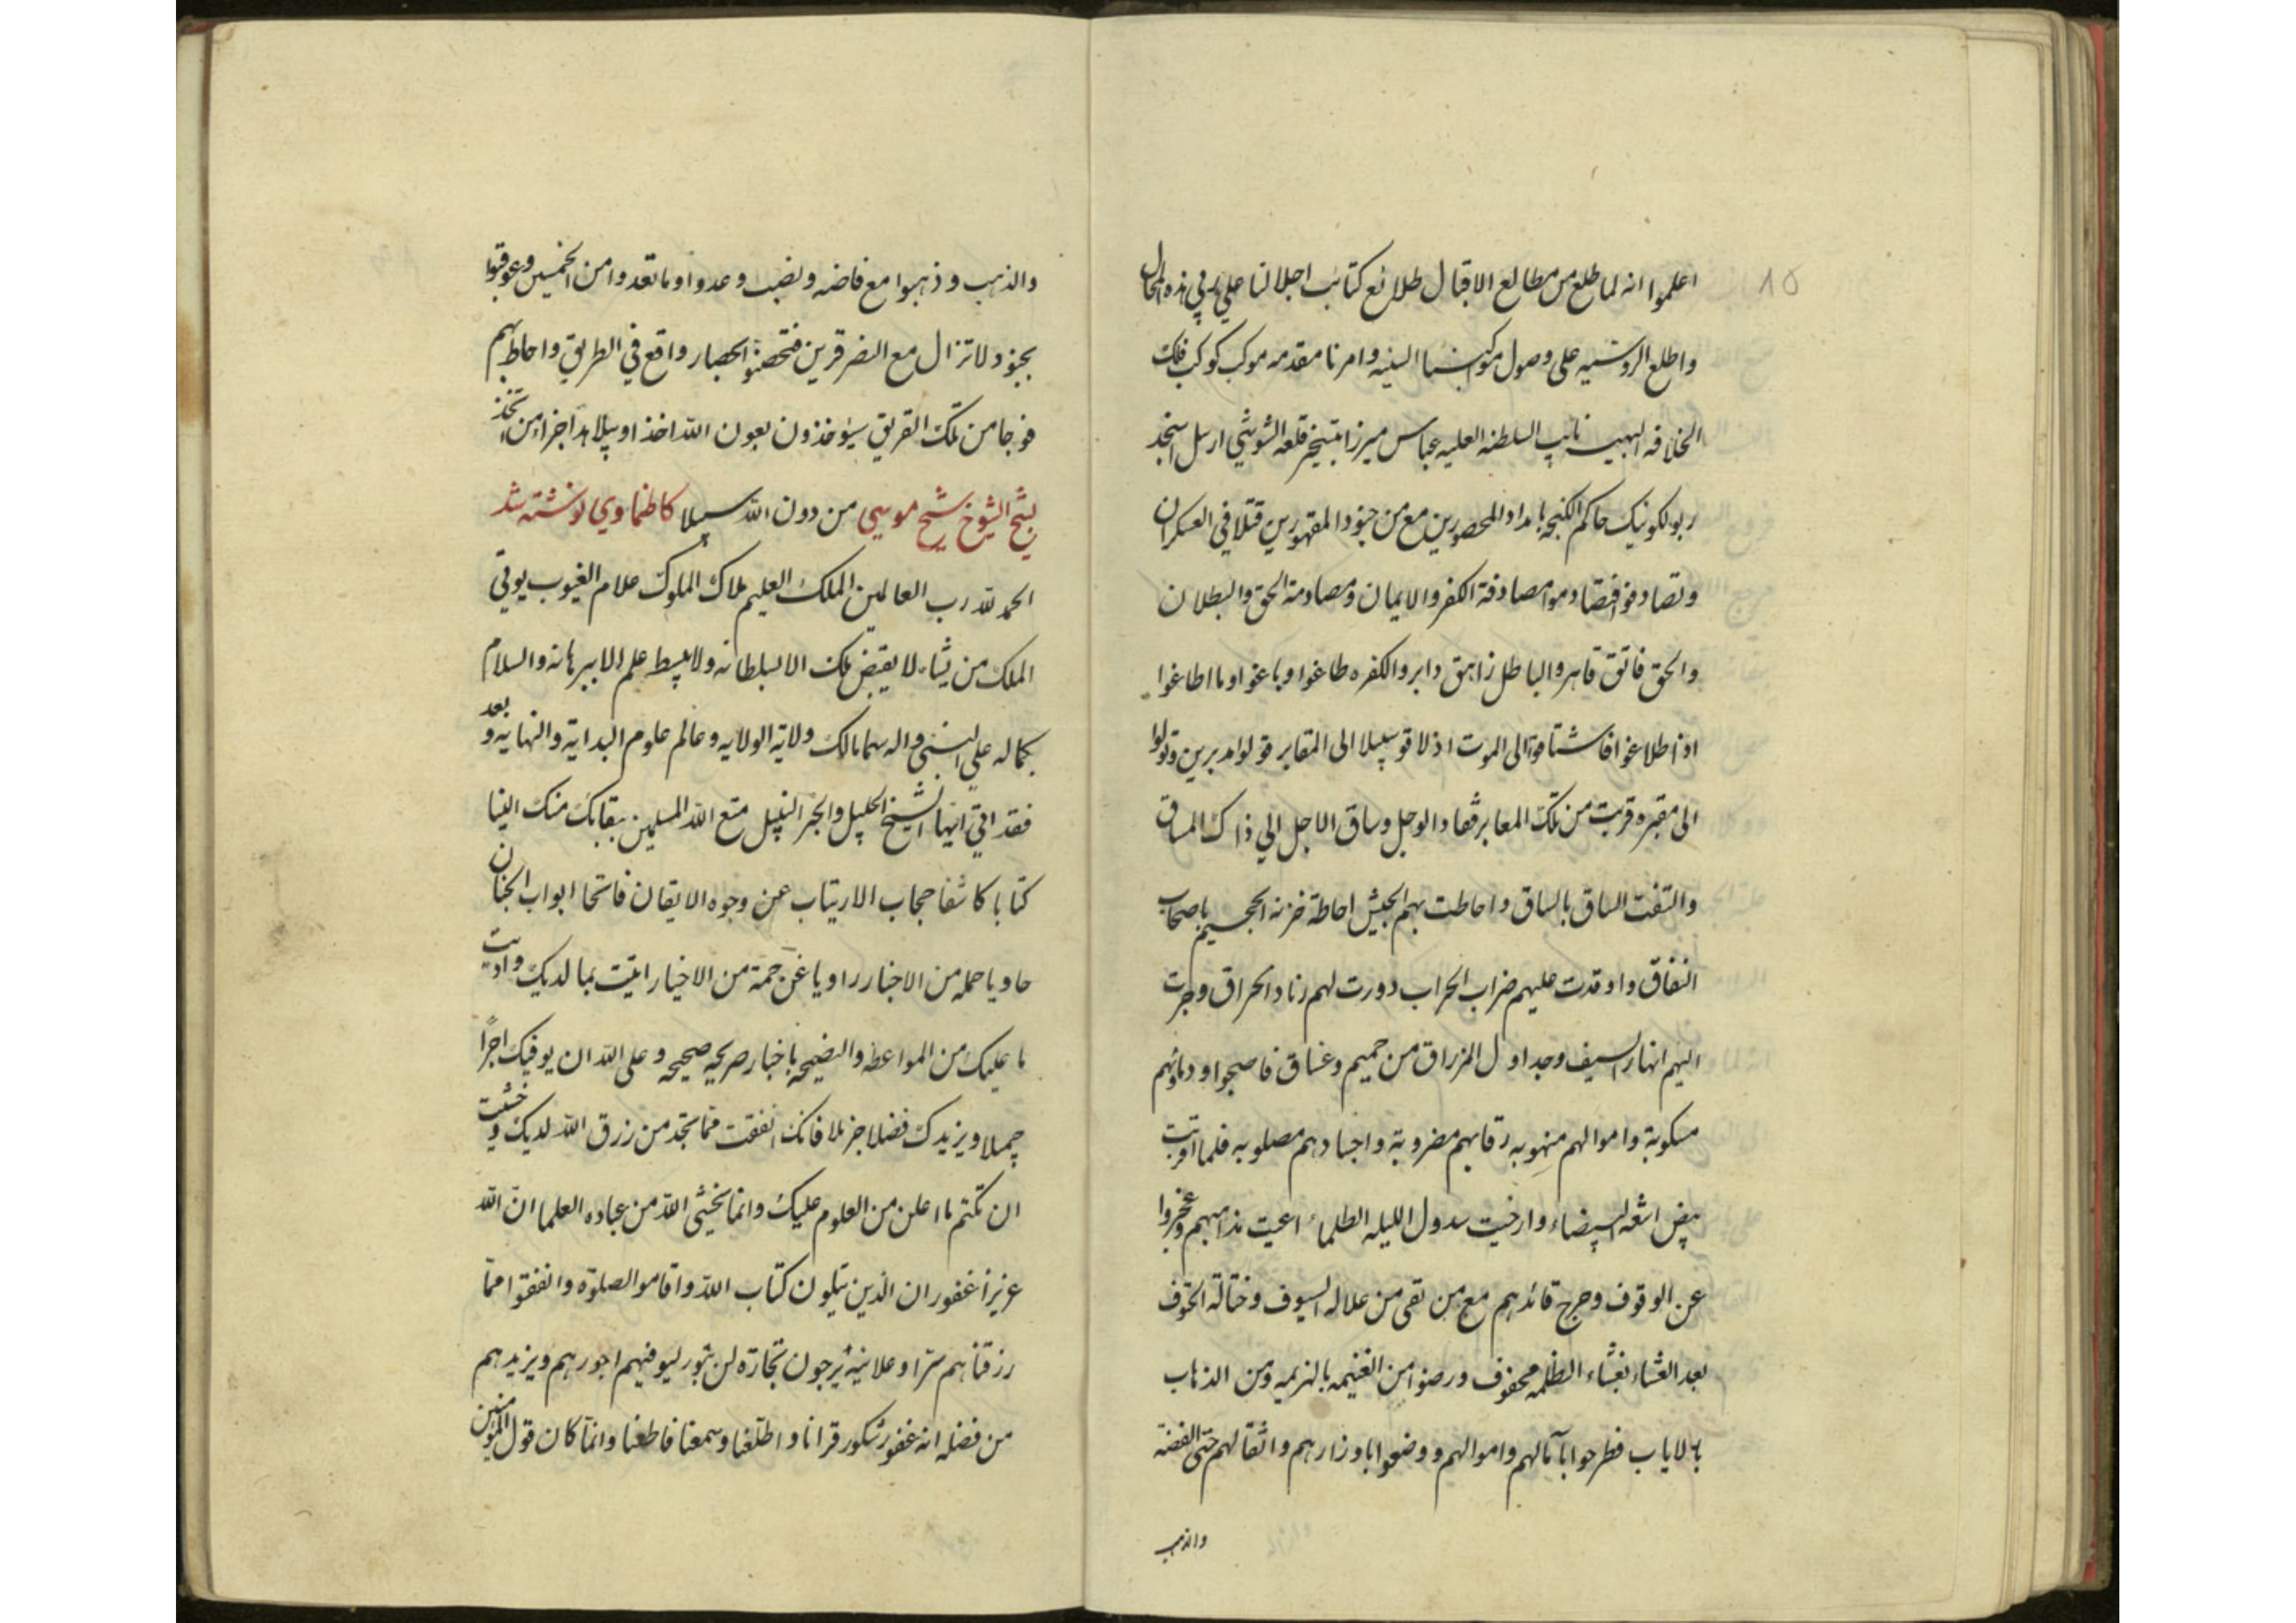 ١٥
اعلموا انه لما طلع من مطالع الاقبال طلائع كتائب اجلالنا علي في هذه المحال
واطلع الروسيه على وصول مواكبنا السنيه وامرنا مقدمه موكب كوكب فلك
الخلافه البهيه نايب السلطنه العليه عباس ميرزا بتسخير قلعه الشوشي ارسل استنجد
كونيك حاكم الكنجه بامداد المحصورين مع من جنود المقهورين قتلا في العسكران
وتصادفوا فتصادموا مصادفة الكفر والايمان ومصادمة الحق والبطلان
والحق فاتق قاهر والباطل زاهق دابر والكفره طاغوا وباغوا وما اطاعوا
اذ اطلاعوا فاشتاقوا الى الموت اذ لاقو سبيلا الى المقابر فولوا مدبرين وتولوا
الى مقبره قربت من تلك المعابر فقاد الوجل وساق الاجل الي ذاك المساق
والتفت الساق بالساق واحاطت بهم الجيش احاطة خزنه الجحيم باصحاب
النفاق واوقدت عليهم ضراب الحراب دورت لهم زناد الحراق وجرت
اليهم انهار السيف وجداول المزراق من حميم وغساق فاصبحوا ودماؤهم
مسكوبة واموالهم منهوبه رقابهم مضروبة واجسادهم مصلوبه فلما اقربت
بيض اشعه البيضاء وارخيت سدول الليله الظلماء اعيت مذاهبهم وعجزوا
عن الوقوف وجرح قائدهم مع من بقى من علاله السيوف وختالة الحتوف
بعد العشاء بغشاء الظلمه محفوف ورضوا من الغنيمه بالهزيمه ومن الذهاب
بالاياب فطرحوا بآمالهم واموالهم ووضعوا باوزارهم واثقالهم حتى الفضة
والذهب
والذهب وذهبوا مع فاضه ونضب وعدوا وما تعدوا من الخميس وعوقبوا
بجنود لا تزال مع النصر قرين فتحصنوا بحصار واقع في الطريق واحاط بهم
فوجا من تلك الفريق سيؤخذون بعون الله اخذا وبيلا هذا جزاء من يتخذ
من دون الله سبيلا كاظماوي نوشته شد
بشيخ الشيوخ شيخ موسى
الحمد لله رب العالمين الملك العليم ملاك الملوك علام الغيوب يوتي
الملك من يشاء لا يقبض ملك الا بسلطانه ولا يبسط علم الا ببرهانه والسلام
بكماله علي النبي واله هما مالك ولاية الولايه وعالم علوم البداية والنهايه وبعد
فقد اتي ايها الشيخ الجليل والحبر النبيل متع الله المسلمين ببقائك منك الينا
كتابا كاشفا حجاب الارتياب عن وجوه الايقان فاتحا ابواب الجنان
حاويا جمله من الاخبار راويا عن جمة من الاخيار اتيت بما لديك واديت
ما عليك من المواعظه والنصيحه باخبار صريحه صحيحه وعلى الله ان يوفيك اجرًا
جميلا ويزيدك فضلا جزيلا فانك انفقت مما تجد من رزق الله لديك وخشيت
ان تكتم ما اعلن من العلوم عليك وانما يخشى الله من عباده العلما ان الله
عزيز غفور ان الذين يتلون كتاب الله واقاموا الصلوة وانفقوا مما
رزقناهم سرا وعلانية يرجون تجارة لن تبور ليوفيهم اجورهم ويزيدهم
من فضله انه غفور شكور قرانا واطلعنا وسمعنا فاطعنا وانما كان قول المؤمنين